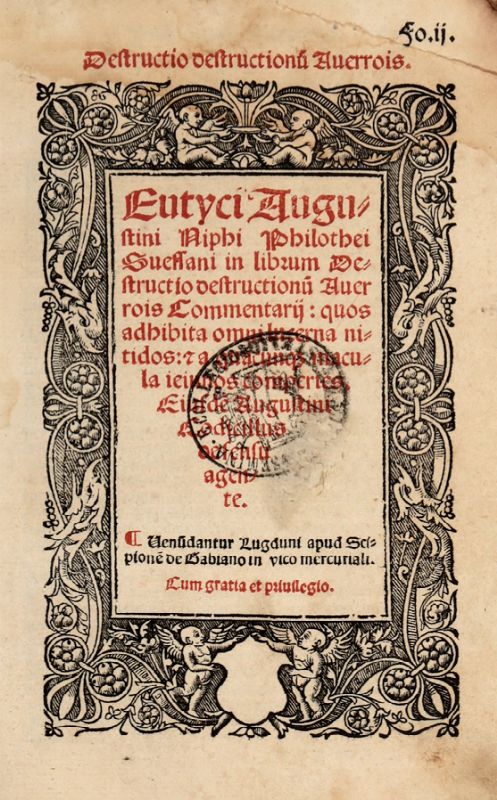 Fo.ij.
Destructio destructionũ Auerrois.
Eutyci Augu⸗
stini Niphi Philothei
Suessani in librum De⸗
structio destructionũ Auer
rois Commentarij: quos
adhibita omni lucerna ni⸗
tidos: ⁊ a macu⸗
la ieiunos comperies.
Eiusdẽ Augustini
de sensu
agen⸗
te.
¶ Venũdantur Lugduni apud Sci⸗
pionẽ de Gabiano in vico mercuriali.
Cum gratia et priuilegio.